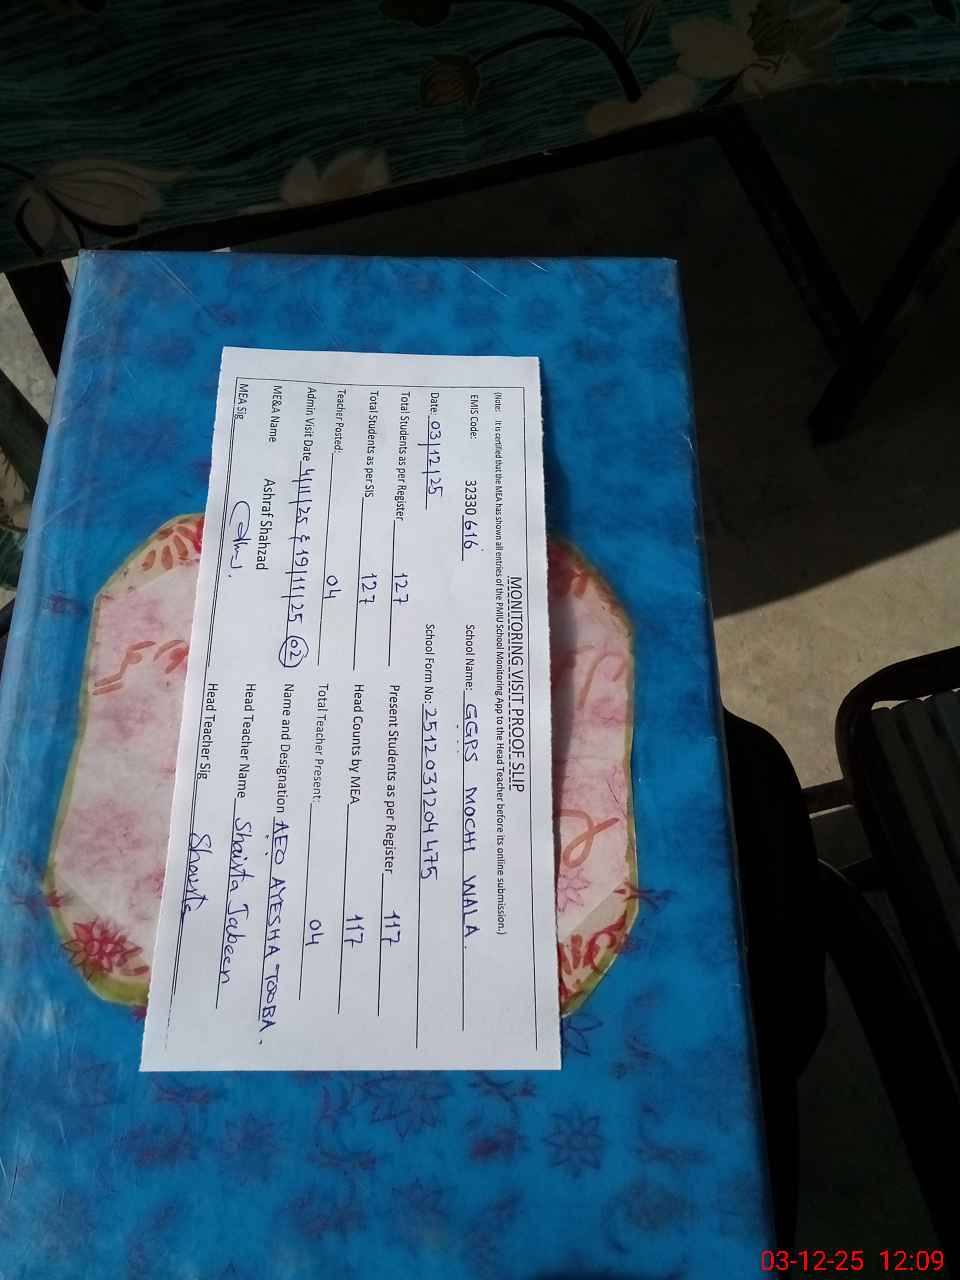 MONITORING VISIT PROOF SLIP
(Note: It is certified that the MEA has shown all entries of the PMIU School Monitoring App to the Head Teacher before its online submission.)
EMIS Code: 32330 616 School Name: GGPS MOCHI WALA.
Date: 03/12/25 School Form No: 2512031204475
Total Students as per Register 127 Present Students as per Register 117
Total Students as per SIS 127 Head Counts by MEA 117
Teacher Posted: 04 Total Teacher Present: 04
Admin Visit Date 4/11/25 & 19/11/25 02 Name and Designation AEO AYESHA TOOBA.
ME&A Name Ashraf Shahzad Head Teacher Name Shaista Jabeen
MEA Sig Head Teacher Sig Shaista
03-12-25 12:09